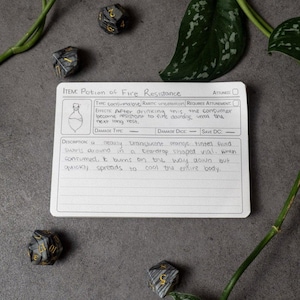 ITEM: Potion of Fire Resistance ATTUNED
TYPE: consumable RARITY: uncommon REQUIRES ATTUNEMENT:
EFFECT: After drinking this the consumer
become resistant to fire until the
next long rest.
DAMAGE TYPE: — DAMAGE DICE: — SAVE DC: —
DESCRIPTION: A nearly transparent orange tinted fluid
swirls around in a teardrop shaped vial. When
consumed, it burns on the way down but
quickly spreads to cool the entire body.